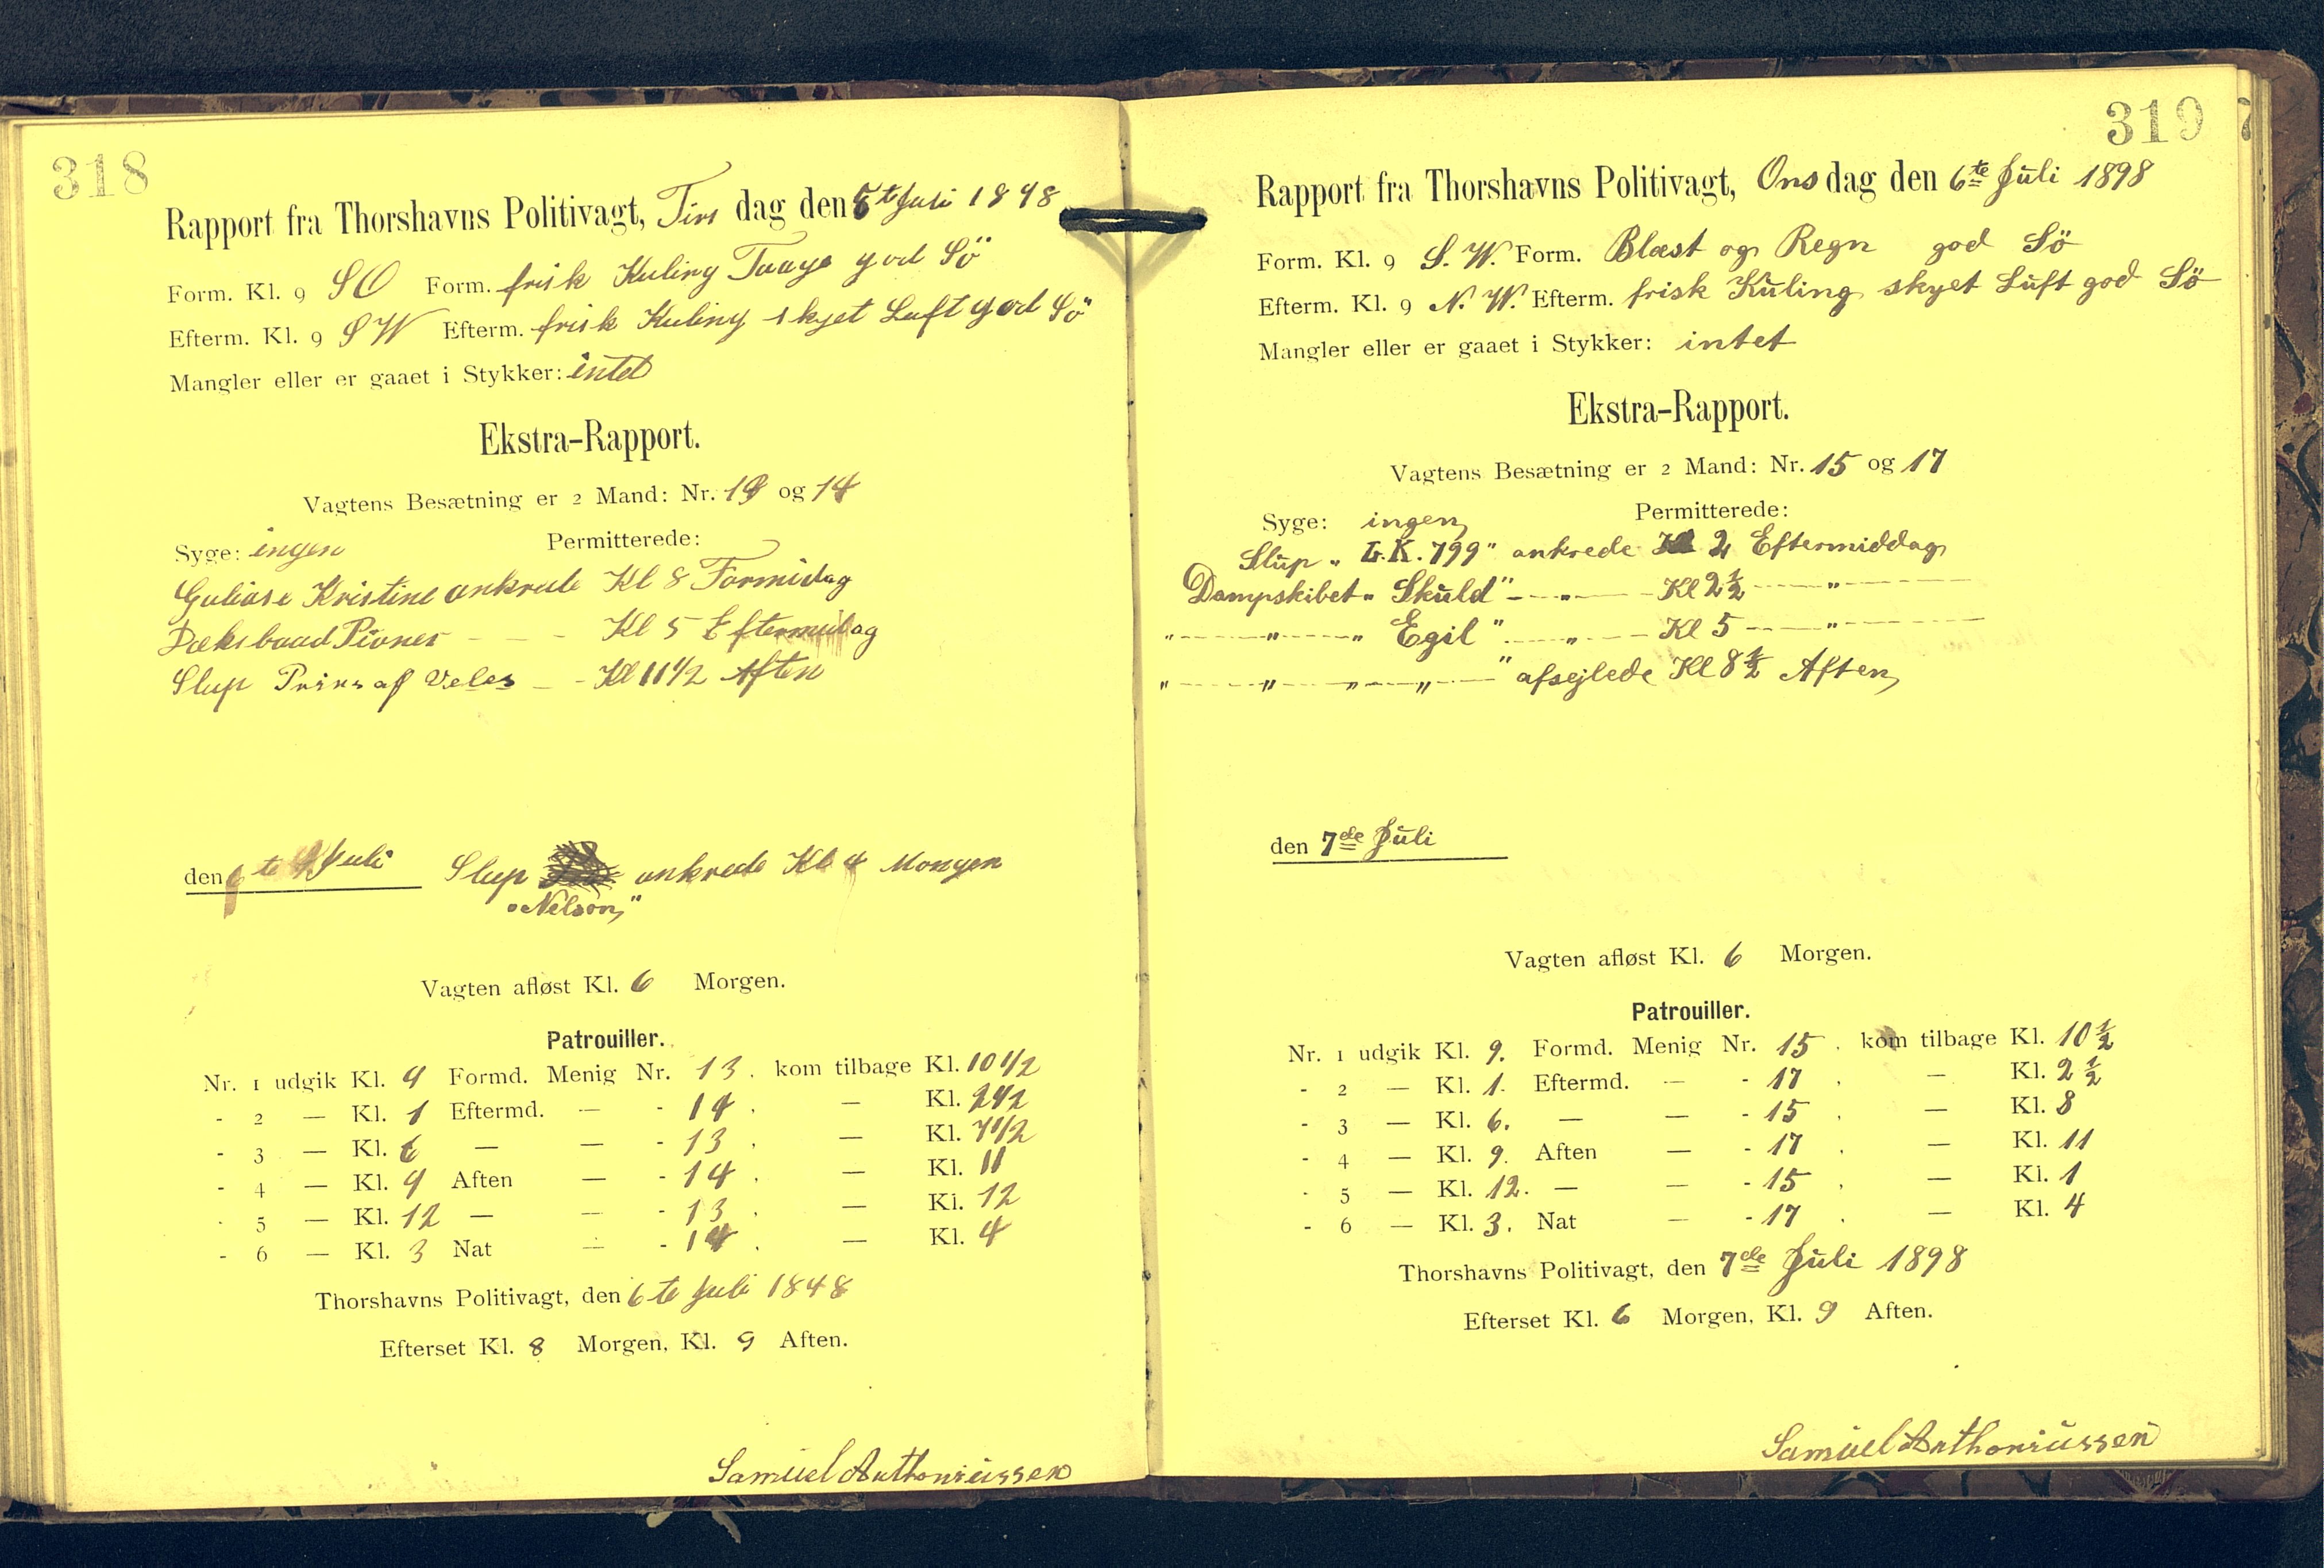 318
Rapport fra Thorshavns Politivagt, Tirsdag den 5te Juli 1898
Form. Kl. 9 SO Form. frisk Kuling Taage god Sö
Efterm. Kl. 9 SW Efterm. frisk Kuling skyet Luft god Sö
Mangler eller er gaaet i Stykker: intet
Ekstra-Rapport.
Vagtens Besætning er 2 Mand: Nr. 13 og 14
Syge: ingen Permitterede:
Galiase Kristine ankrede Kl 8 Formidag
Dæksbaad Pioner - - - Kl 5 Eftermidag
Slup Prins af Veles - - Kl 11 1/2 Aften
den 6te Juli Slup ankrede Kl 4 Morgen
"Nelson"
Vagten afløst Kl. 6 Morgen.
Patrouiller.
Nr. 1 udgik Kl. 9 Formd. Menig Nr. 13. kom tilbage Kl. 10 1/2
- 2 — Kl. 1 Eftermd. — - 14. — Kl. 2 1/2
- 3 — Kl. 6 — — - 13. — Kl. 7 1/2
- 4 — Kl. 9 Aften — - 14. — Kl. 11
- 5 — Kl. 12 — — - 13. — Kl. 12
- 6 — Kl. 3 Nat — - 14. — Kl. 4
Thorshavns Politivagt, den 6te Juli 1898
Efterset Kl. 8 Morgen, Kl. 9 Aften.
Samüel Anthoniüssen
319
Rapport fra Thorshavns Politivagt, Onsdag den 6te Jüli 1898
Form. Kl. 9 S. W. Form. Blæst og Regn god Sö
Efterm. Kl. 9 N. W. Efterm. frisk Küling skyet Lüft god Sö
Mangler eller er gaaet i Stykker: intet
Ekstra-Rapport.
Vagtens Besætning er 2 Mand: Nr. 15 og 17
Syge: ingen Permitterede:
Slüp "L.K. 799" ankrede Kl 2 Eftermiddag
Dampskibet "Sküld" - " - Kl 2 1/2 - " -
" - " - " Egil" - " - Kl 5 - " -
" - " - " - " - " afsejlede Kl 8 1/2 Aften
den 7de Jüli
Vagten afløst Kl. 6 Morgen.
Patrouiller.
Nr. 1 udgik Kl. 9. Formd. Menig Nr. 15. kom tilbage Kl. 10 1/2
- 2 — Kl. 1. Eftermd. — - 17. — Kl. 2 1/2
- 3 — Kl. 6. — — - 15. — Kl. 8
- 4 — Kl. 9. Aften — - 17. — Kl. 11
- 5 — Kl. 12. — — - 15. — Kl. 1
- 6 — Kl. 3. Nat — - 17. — Kl. 4
Thorshavns Politivagt, den 7de Jüli 1898
Efterset Kl. 6 Morgen, Kl. 9 Aften.
Samüel Anthoniüssen